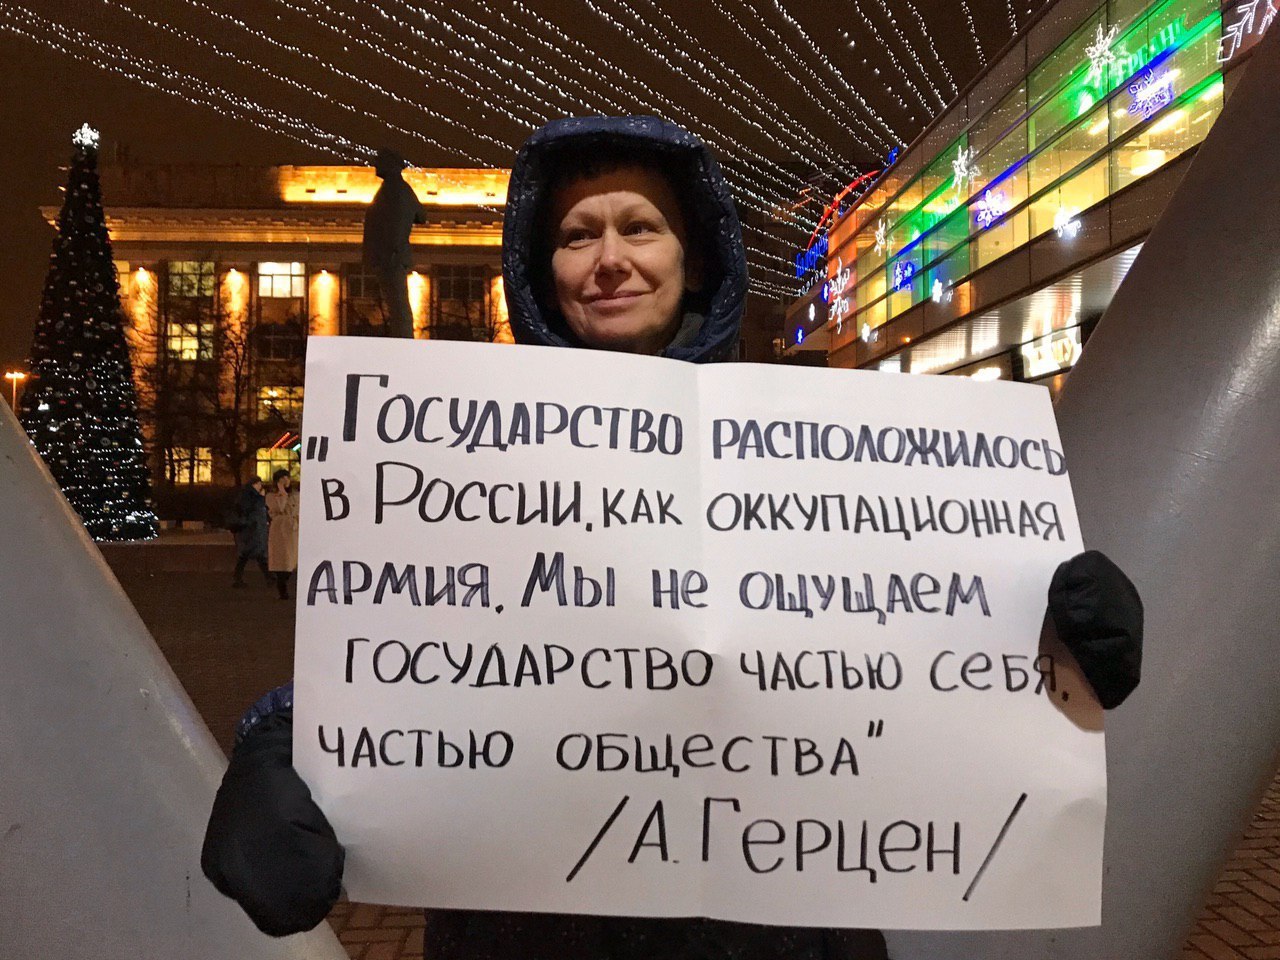 „Государство расположилось
в России, как оккупационная
армия. Мы не ощущаем
государство частью себя,
частью общества"
/А. Герцен/